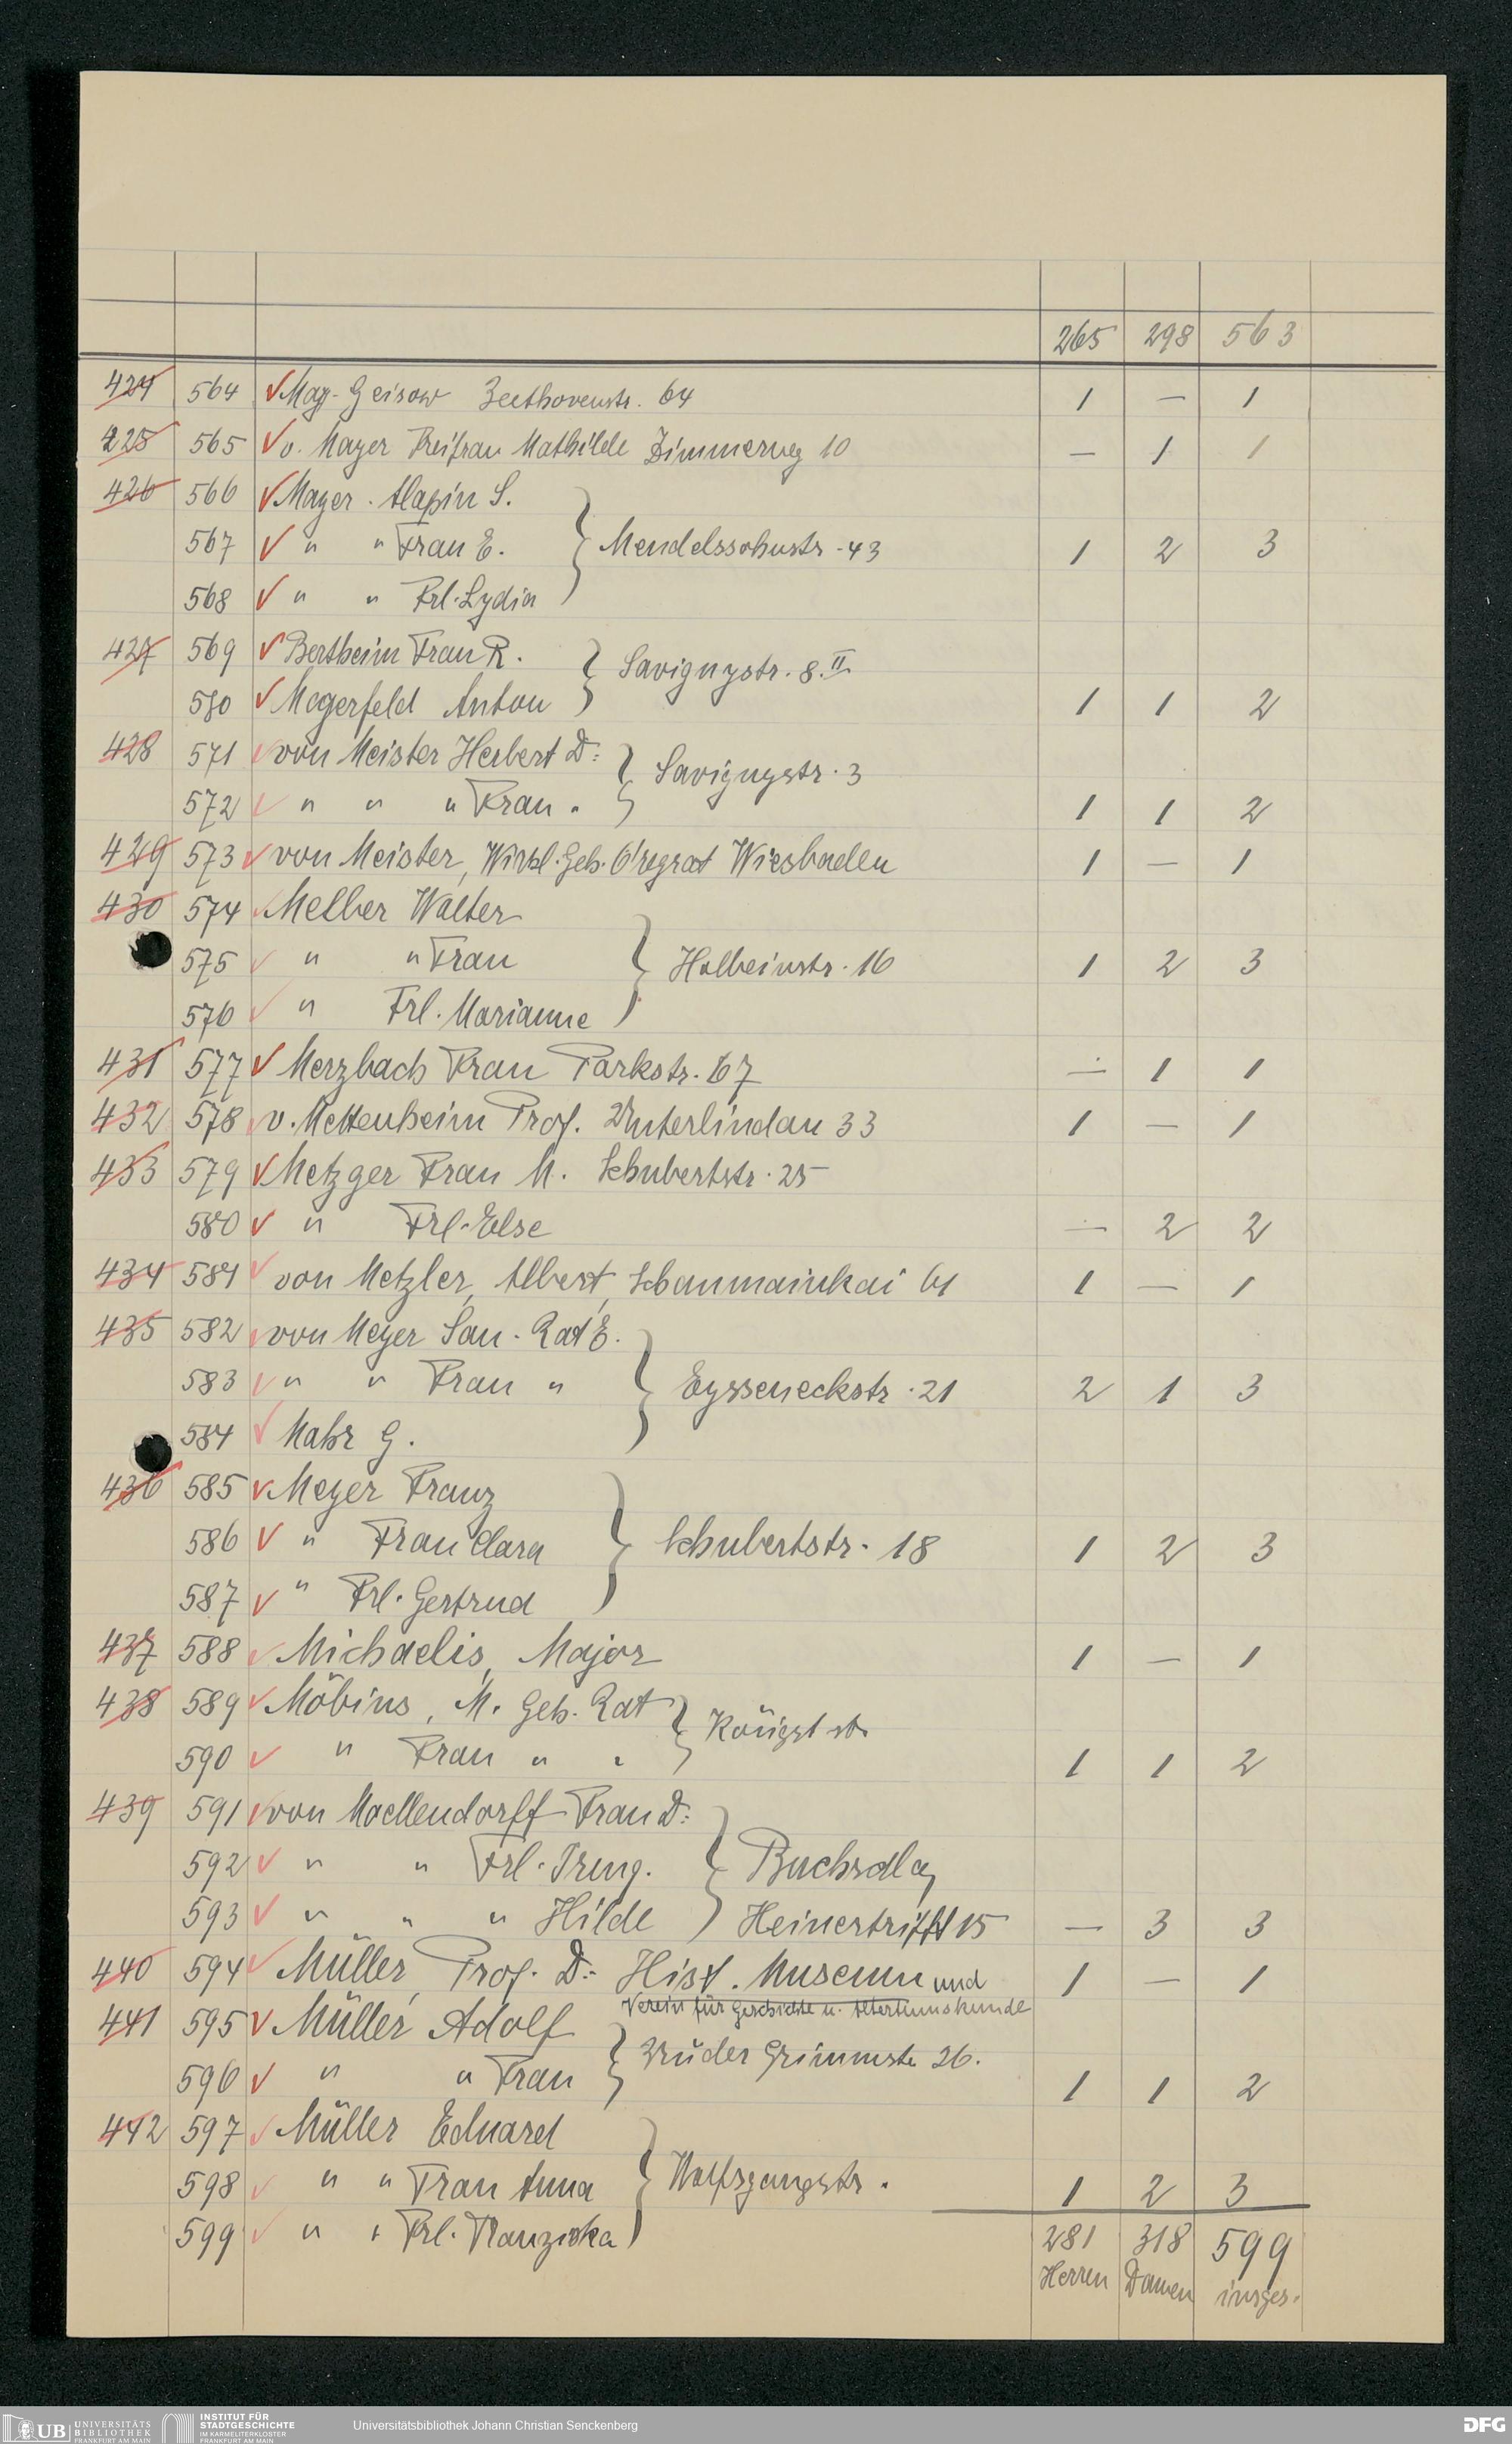 265 298 563
424 564 May-Geisow Beethovenstr. 64 1 — 1
425 565 v. Mayer Freifrau Mathilde Zimmerweg 10 — 1 1
426 566 Mayer-Alapin S.
567 " " Frau E. Mendelssohnstr. 43 1 2 3
568 " " Frl. Lydia
427 569 Bertheim Frau R. Savignystr. 8. II
570 Megerfeld Anton 1 1 2
428 571 von Meister Herbert D:
Savignystr. 3
572 " " " Frau " 1 1 2
429 573 von Meister, Wirkl. Geh. O'regrat Wiesbaden 1 — 1
430 574 Melber Walter
575 " " Frau Holbeinstr. 16 1 2 3
576 " Frl. Marianne
431 577 Merzbach Frau Parkstr. 67 — 1 1
432 578 v. Mettenheim Prof. Unterlindau 33 1 — 1
433 579 Metzger Frau M. Schubertstr. 25
580 " Frl. Else — 2 2
434 581 von Metzler, Albert, Schaumainkai 61 1 — 1
435 582 von Meyer San.-Rat E.
583 " " Frau " Eysseneckstr. 21 2 1 3
584 Mahr G.
436 585 Meyer Franz
586 " Frau Clara Schubertstr. 18 1 2 3
587 " Frl. Gertrud
437 588 Michaelis, Major 1 — 1
438 589 Möbius, M. Geh. Rat
590 " Frau " " 1 1 2
439 591 von Moellendorff Frau D:
592 " " Frl. Buchschlag
593 " " " Hilde Heinertrifft 15 — 3 3
440 594 Müller, Prof. D: Hist. Museum und 1 — 1
Verein für Geschichte u. Altertumskunde
441 595 Müller Adolf
Brüder Grimmstr. 26.
596 " " Frau 1 1 2
442 597 Müller Eduard
598 " " Frau Anna Wolfsgangstr. 1 2 3
599 " " Frl. Franziska
281 318 599
Herren Damen insges.
UB UNIVERSITÄTS BIBLIOTHEK FRANKFURT AM MAIN
INSTITUT FÜR STADTGESCHICHTE IM KARMELITERKLOSTER FRANKFURT AM MAIN
Universitätsbibliothek Johann Christian Senckenberg
DFG